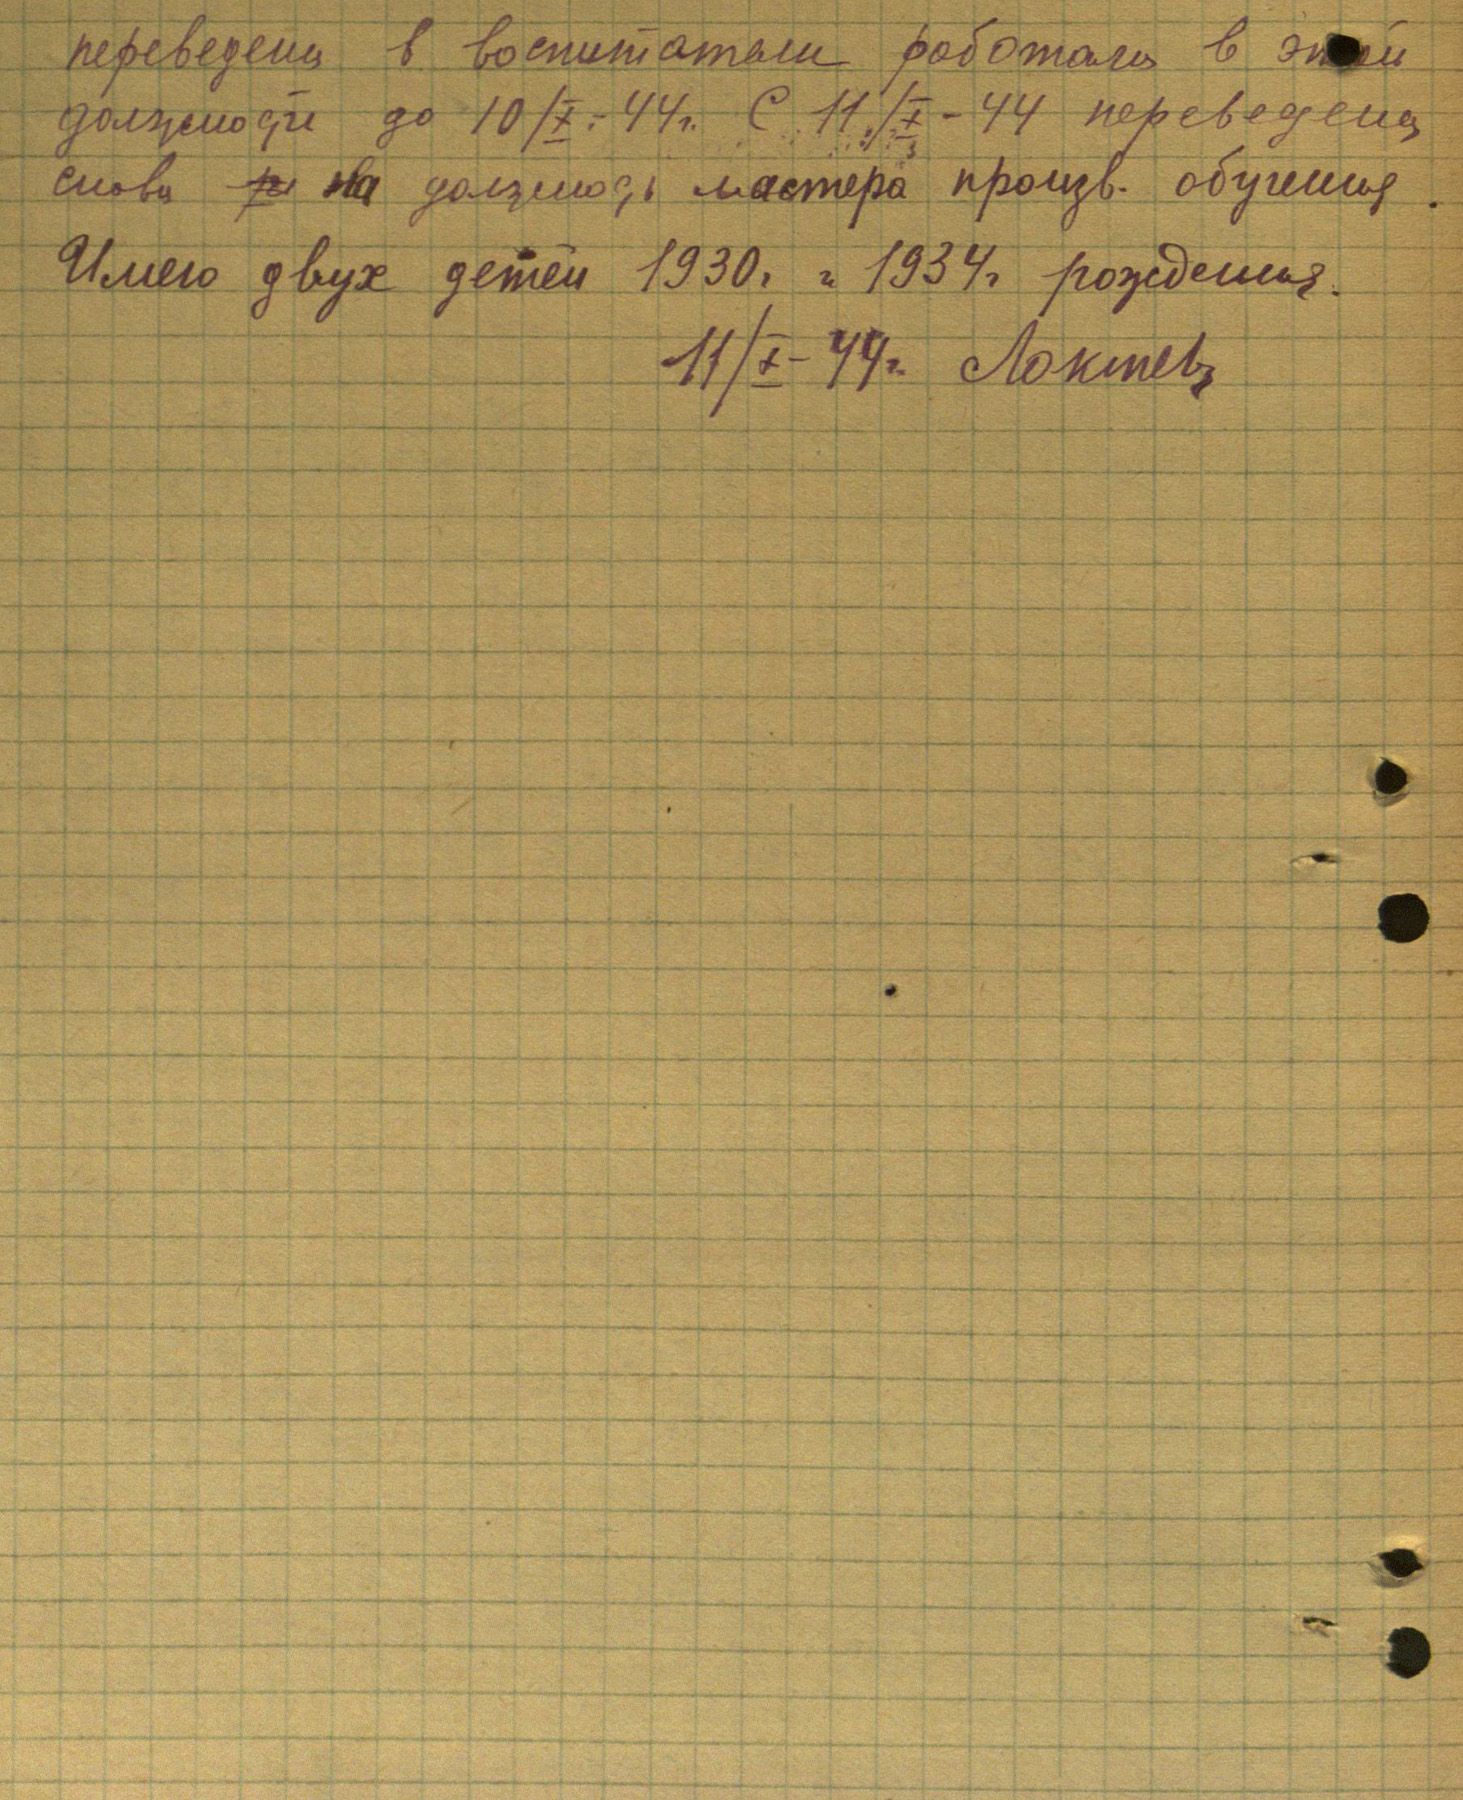 переведена в воспитатели работала в этой
должности до 10/X-44г. С 11/X-44 переведена
снова на должность мастера произв. обучения.
Имею двух детей 1930г. и 1934г рождения.
11/X-44г. Локтева